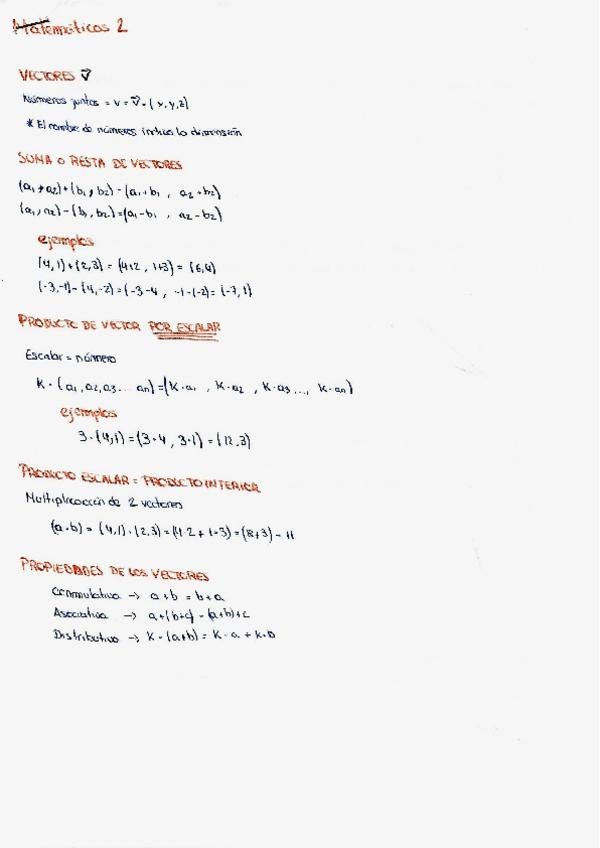 Matemáticas 2
VECTORES v⃗
Números juntos = v = v⃗ = (x, y, z)
* El nombre de números indica la dimensión
SUMA O RESTA DE VECTORES
(a₁, a₂) + (b₁, b₂) = (a₁ + b₁, a₂ + b₂)
(a₁, a₂) - (b₁, b₂) = (a₁ - b₁, a₂ - b₂)
ejemplos
(4, 1) + (2, 3) = (4+2, 1+3) = (6, 4)
(-3, -1) - (4, -2) = (-3-4, -1-(-2) = (-7, 1)
PRODUCTO DE VECTOR POR ESCALAR
Escalar = número
K · (a₁, a₂, a₃ ... an) = (K·a₁, K·a₂, K·a₃ ..., K·an)
ejemplos
3 · (4, 1) = (3·4, 3·1) = (12, 3)
PRODUCTO ESCALAR = PRODUCTO INTERIOR
Multiplicación de 2 vectores
(a·b) = (4, 1) · (2, 3) = (4·2 + 1·3) = (8+3) = 11
PROPIEDADES DE LOS VECTORES
Conmutativa → a + b = b + a
Asociativa → a + (b+c) = (a+b) + c
Distributiva → K · (a+b) = K·a + K·b